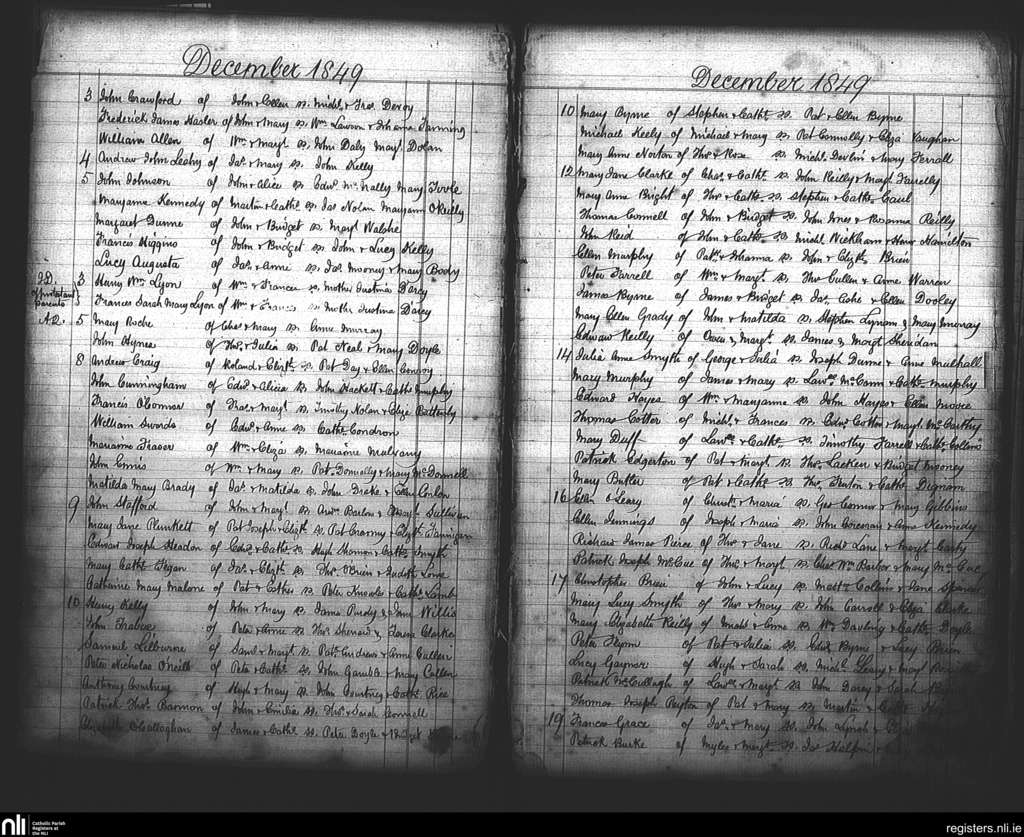 December 1849
3 John Crawford of John & Ellen ss. Michl. & Fras. Devoy
Frederick James Hasler of John & Mary ss. Wm. Lawson & Johanna Fanning
William Allen of Wm. & Margt. ss. John Daly Margt. Dolan
4 Andrew John Leahy of Jas. & Mary ss. John Kelly
5 John Johnson of John & Alice ss. Edwd. McNally Mary Toole
Maryanne Kennedy of Martin & Cathe. ss. Jas Nolan Maryann OReilly
Margaret Dunne of John & Bridget ss. Margt. Walshe
Francis Higgins of John & Bridget ss. John & Lucy Kelly
Lucy Augusta of Jas. & Anne ss. Jas. Mooney & Mary Body
3 Henry Wm. Lyon of Wm. & Frances ss. Mother Justina D'arcy
J.D.
of protestant
parents
A.Q.
Frances Sarah Mary Lyon of Wm & Frances ss. Mother Justina D'arcy
5 Mary Roche of Chas. & Mary ss. Anne Murray
John Hynes of Thos. & Julia ss. Pat Neal & Mary Doyle
8 Andrew Craig of Roland & Elizth. ss. Pat Day & Ellen Conroy
John Cunningham of Edwd. & Alicia ss. John Hackett & Cathe. Murphy
Francis O'Connor of Fras. & Margt. ss. Timothy Nolan & Eliza Batterly
William Swords of Edwd. & Anne ss. Cathe. Condron
Marianne Fraser of Wm. & Eliza ss. Marianne Mulvany
John Ennis of Wm. & Mary ss. Pat. Donnolly & Mary McDonnell
Matilda Mary Brady of Jas. & Matilda ss. John Drake & Conlon
9 John Stafford of John & Margt. ss. Andw. Barlow & Sullivan
Mary Jane Plunkett of Pat Joseph & Elizth. ss. Pat & Elizth. Flannigan
Edward Joseph Headon of Edwd. & Cathe. ss. Hugh & Cathe. Smyth
Mary Cathe. Fegan of Jas. & Elizth. ss. Thos. OBrien & Judith Lowe
Catherine Mary Malone of Pat & Esther ss. Peter & Cathe. Lamb
10 Henry Kelly of John & Mary ss. James Purdy & Jane Willis
John of Peter & Annie ss. Thos. & Teresa Clarke
Samuel Lilburne of Saml. & Margt. ss. Pat. Andrews & Anne Cullen
Peter Nicholas O'Neill of Peter & Cathe. ss. John Gamble & Mary Cullen
Anthony Courtney of Hugh & Mary ss. John Courtney & Cathe. Rice
Patrick Thos. Bannon of John & Emilia ss. Thos. & Sarah Connell
Elizabeth OCallaghan of James & Cathe. ss. Peter Doyle & Bridget
December 1849
10 Mary Byrne of Stephen & Cathe. ss. Pat & Ellen Byrne
Michael Keely of Michael & Mary ss. Pat Connolly & Eliza Vaughan
Mary Anne Norton of Thos. & Rose ss. Michl. Devlin & Mary Farrall
12 Mary Jane Clarke of Chas. & Cathe. ss. John Reilly & Margt. Farrelly
Mary Anne Bright of Thos. & Cathe. ss. Stephen & Cathe. Gaul
Thomas Connell of John & Bridget ss. John & Rosanna Reilly
John Reid of John & Cathe. ss. Michl. Wickham & Hamilton
Ellen Murphy of Patk. & Johanna ss. John & Elizth. Brien
Peter Farrell of Wm. & Margt. ss. Thos. Cullen & Anne Warren
James Byrne of James & Bridget ss. Jas. Cohe & Ellen Dooley
Mary Ellen Grady of John & Matilda ss. Stephen Lynam & Mary Murray
Edward Reilly of Owen & Margt. ss. James & Margt. Sheridan
14 Julia Anne Smyth of George & Julia ss. Joseph Dunne & Anne Mulhall
Mary Murphy of James & Mary ss. Lawce. McCann & Cathe. Murphy
Edward Hayes of Wm. & Maryanne ss. John Hayes & Ellen Moore
Thomas Cotter of Michl. & Frances ss. Edwd. Cotter & Margt. McCarthy
Mary Duff of Lawce. & Cathe. ss. Timothy Farrell & Cathe. Collins
Patrick Edgerton of Pat & Margt. ss. Thos. Lacken & Bridget Mooney
Mary Butler of Pat & Cathe. ss. Thos. Fenton & Cathe. Dignam
16 Ellen O'Leary of & Maria ss. Geo. Connor & Mary Gibbins
Ellen Jennings of Joseph & Maria ss. John Corcoran & Anne Kennedy
Richard James Pierce of Thos. & Jane ss. Richd. Lane & Margt. Carty
Patrick Joseph McCae of Thos. & Margt. ss. Chas. Wm. Barber & Mary McCae
17 Christopher Brien of John & Lucy ss. Matts. Collins & Jane Spencer
Mary Lucy Smyth of Thos. & Mary ss. John Carroll & Eliza Clarke
Mary Elizabeth Reilly of Michl. & Anne ss. Wm. Dowling & Cathe. Doyle
Peter Flynn of Pat & Julia ss. Edwd. Byrne & Lucy Brien
Lucy Gaynor of Hugh & Sarah ss. Michl. Leary & Mary
Patrick McCullagh of Lawce. & Margt. ss. John Darcy & Sarah
Thomas Joseph Payton of Pat & Mary ss. Martin &
19 Frances Grace of Jas. & Mary ss. John Lynch &
Patrick Burke of Myles & Margt. ss. Jas Halpin
nli
Catholic Parish
Registers at
the NLI
registers.nli.ie